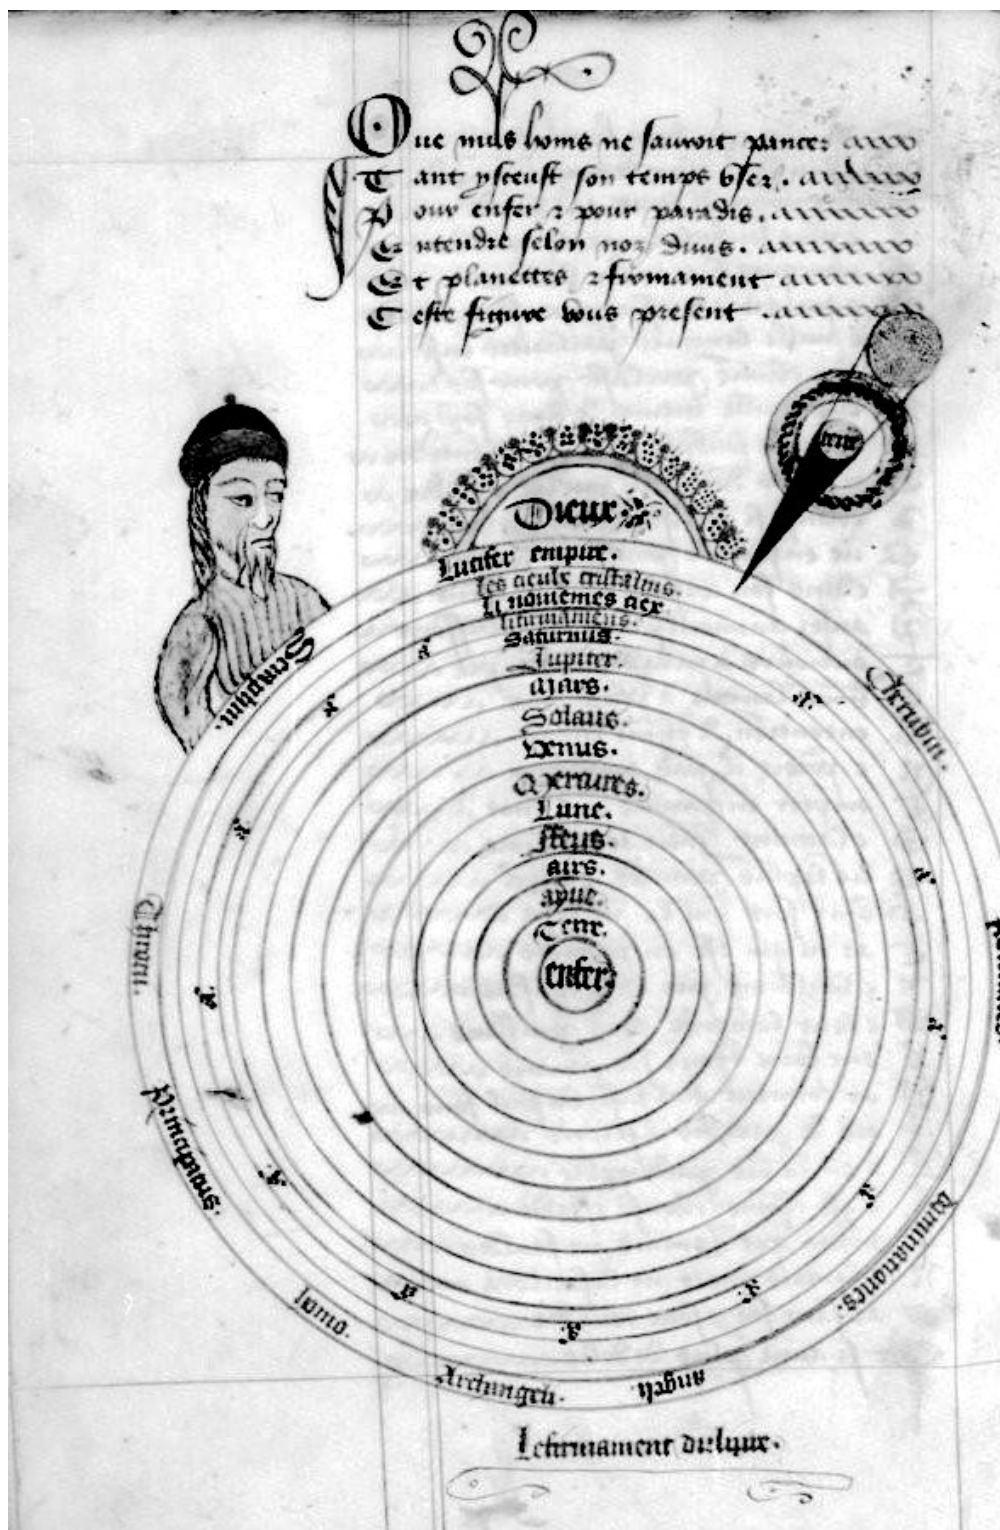 Que nuls homs ne sauroit pancer
Tant ysceust son temps user.
Pour enfer & pour paradis.
Entendre selon noz diuis.
Et planettes & firmament
Ceste figure vous present
Dieux
terre
Lucifer empire.
les cieulx cristalins.
Li nouiemes ciex
firmamens.
Saturnus.
Jupiter.
Mars.
Solaus.
Venus.
Mercures.
Lune.
Feus.
airs.
ayue.
Terre.
enfer.
Seraphin.
Cherubin.
Throni.
Principatus.
homo.
Archangeli.
angeli.
dominationes.
Le firmament du lyure.